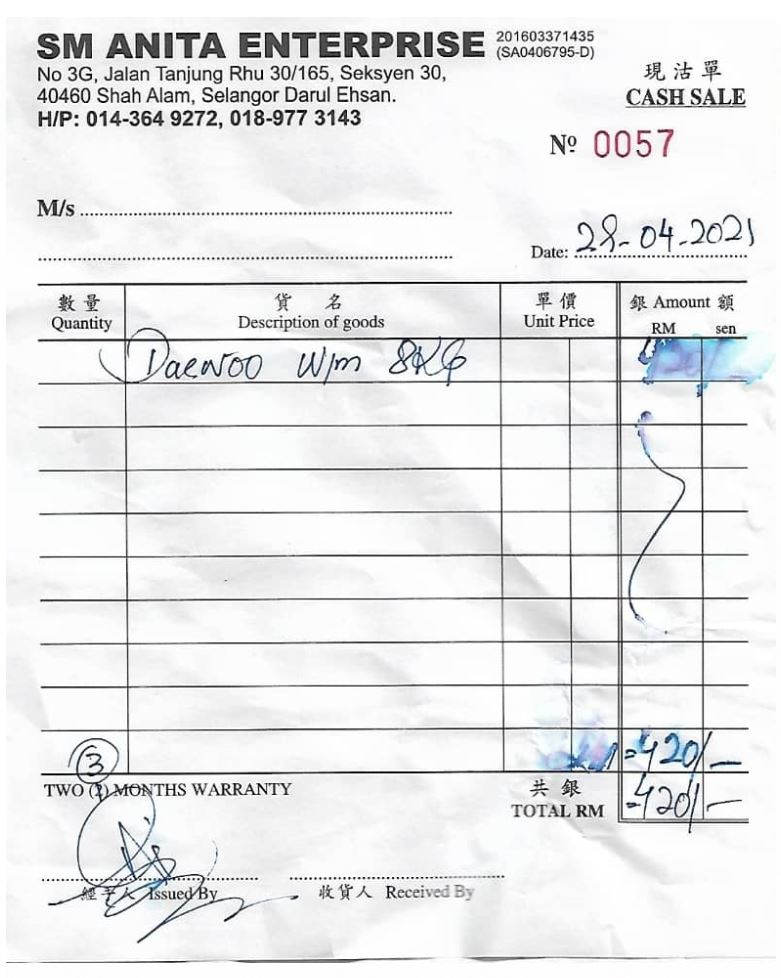 SM ANITA ENTERPRISE 201603371435
(SA0406795-D)
No 3G, Jalan Tanjung Rhu 30/165, Seksyen 30,
40460 Shah Alam, Selangor Darul Ehsan.
H/P: 014-364 9272, 018-977 3143
現沽單
CASH SALE
Nº 0057
M/s
Date: 28-04-2021
數量 貨名 單價 銀 Amount 額
Quantity Description of goods Unit Price RM sen
Daewoo W/m 8KG
=420/—
3
TWO (2) MONTHS WARRANTY
共銀
TOTAL RM =420/—
經手人 Issued By 收貨人 Received By